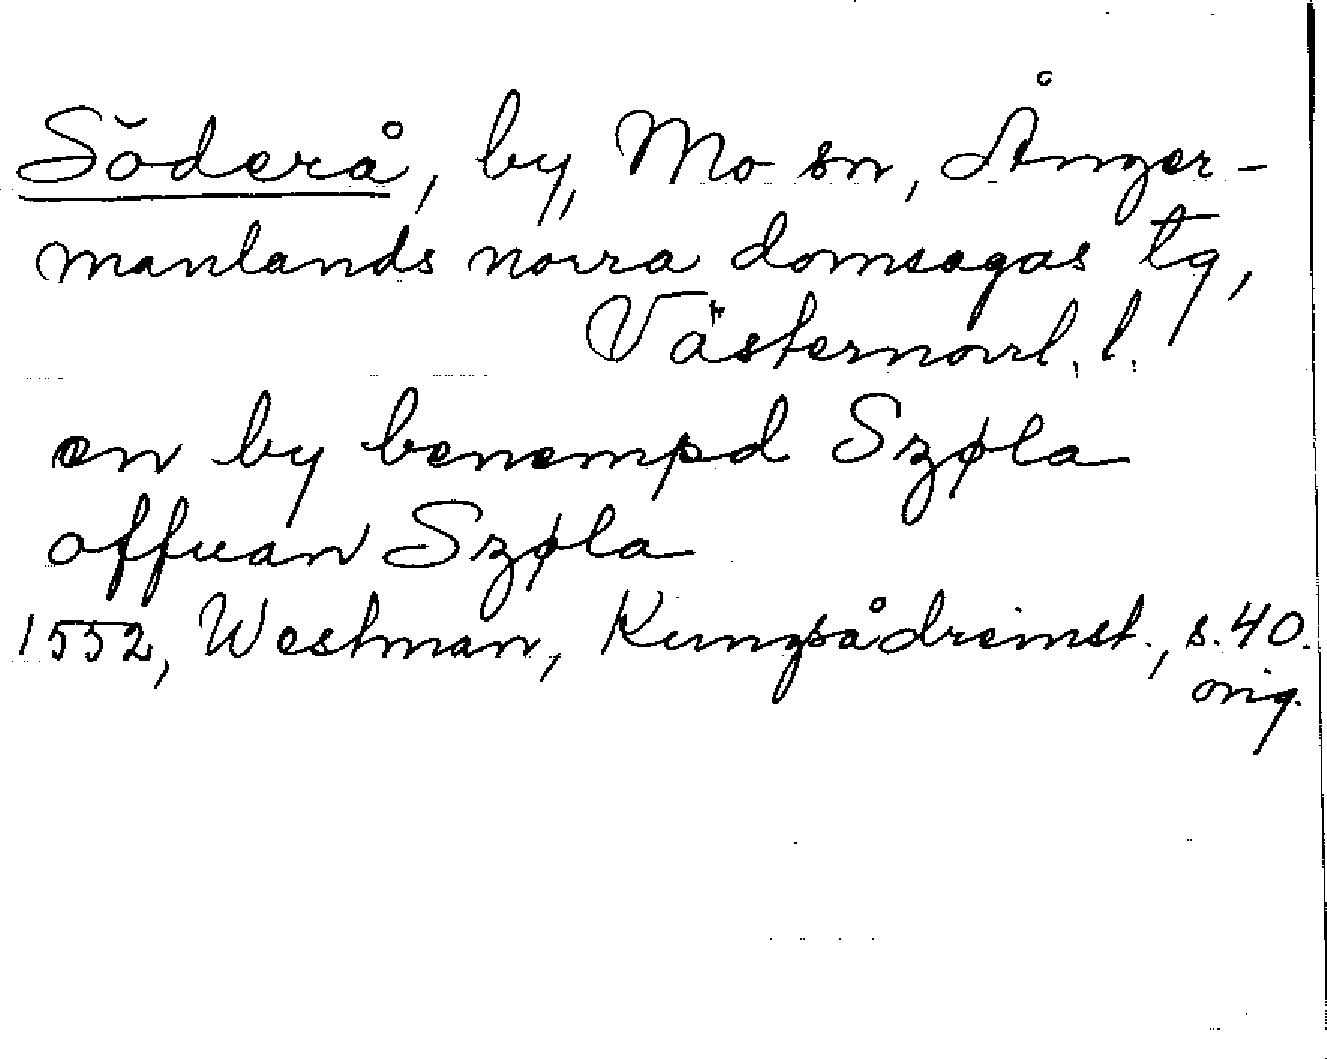 Söderå, by, Mo sn, Ånger-
manlands norra domsagas tg,
Västernorrl. l.
en by benempd Szøla
offuan Szøla
1552, Westman, Kungsådreinst., s. 40.
orig.